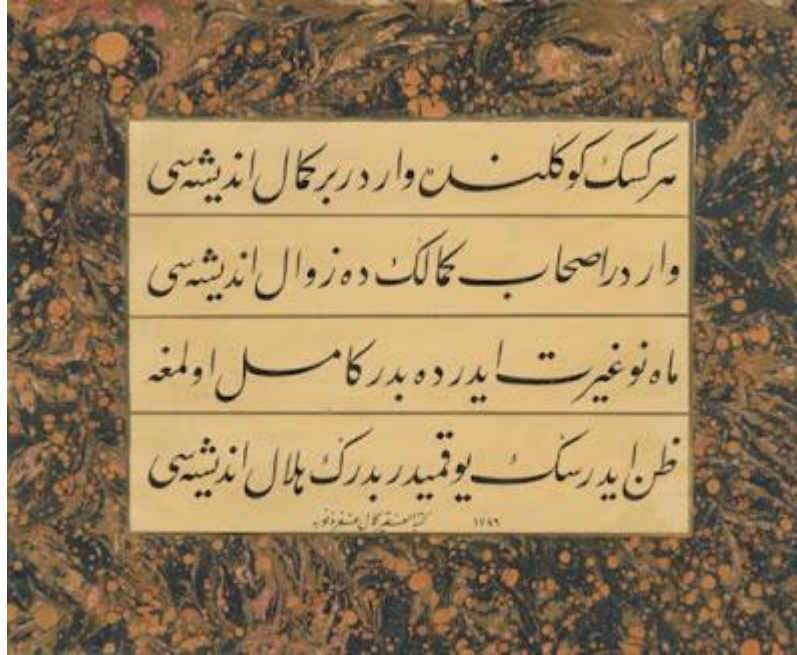 هر كسك كوكلنده وار در بر كمال انديشه‌سى
وار در اصحاب كمالك ده زوال انديشه‌سى
ماه نو غيرت ايدر ده بدر كامل اولمغه
ظن ايدرسك يوقميدر بدرك هلال انديشه‌سى
كتبه الفقير كمال غفر ذنوبه ١٧٨٩